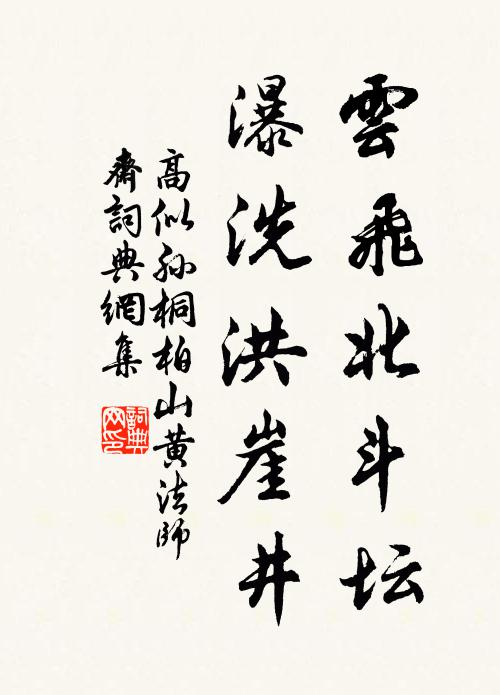 雲飛北斗坛
瀑洗洪崖井
高似孙桐柏山黄法師
齋詞典網集
詞典网印